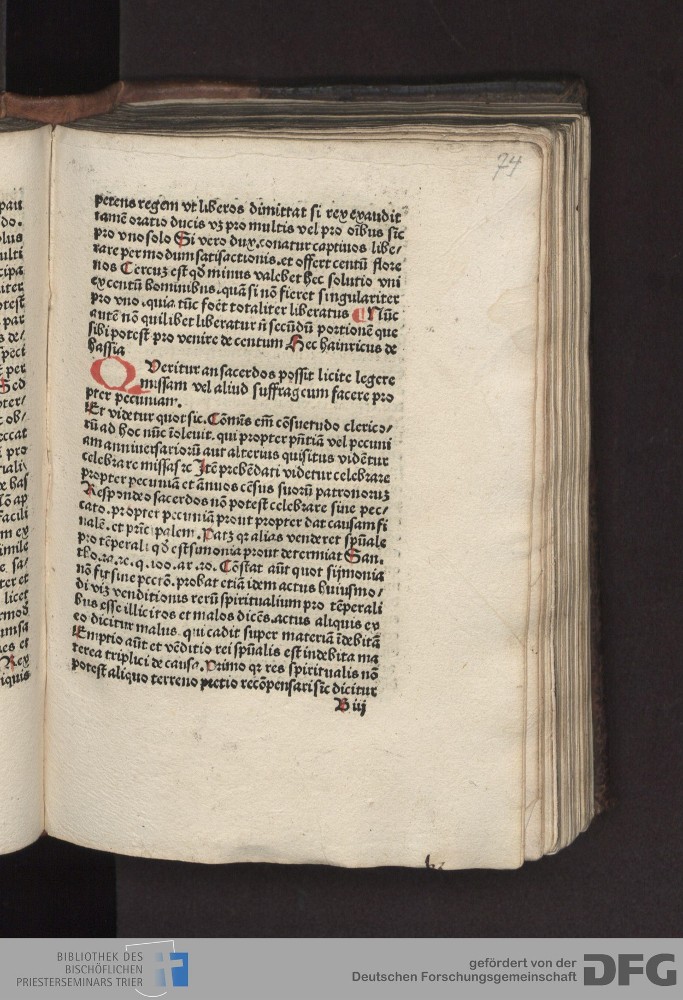 74
petens regem vt liberos dimittat si rex exaudit
tamē oratio ducis vʒ pro multis vel pro oībus sic
pro vno solo Si vero dux conatur captiuos libe/
rare per modum satisfactionis. et offert centū flore
nos Certuʒ est qd̄ minus valebet hec solutio vni
ex centū hominibus. quā si nō fieret singulariter
pro vno. quia tūc foēt totaliter liberatus Nūc
autē nō quilibet liberatur n̄ secūdū portionē que
sibi potest pro venire de centum Hec hainricus de
hassia
Queritur an sacerdos possit licite legere
missam vel aliud suffrageum facere pro
pter pecuniam.
Et videtur quot sic. Cōmūs em̄ cōsuetudo clerico/
rū ad hoc nūc īoleuit. qui propter pn̄tiā vel pecuni
am anniuersariorū aut alterius quisitus vidētur
celebrare missas ꝛc Itē prebēdati videtur celebrare
propter pecuniā et ānuos cēsus suorū patronoruʒ
Respondeo sacerdos nō potest celebrare sine pec/
cato. propter pecuniā prout propter dat causam fi
nalē. et prīcipalem. Patʒ qꝛ alias venderet spūale
pro tēperali qd̄ est simonia prout determiat San.
tho. 2a. 2e. q. 100. ar. 20. Cōstat aūt quot sijmonia
nō fit sine peccō. probat etiā idem actus huiusmo/
di viʒ venditionis rerū spiritualium pro tēperali
bus esse illicitos et malos dicēs. actus aliquis ex
eo dicitur malus. qui cadit super materiā īdebitā
Emptio aūt et vēditio rei spūalis est indebita ma
terea triplici de causa. Primo qꝛ res spiritualis nō
potest aliquo terreno pretio recōpensari sic dicitur
B iij
BIBLIOTHEK DES
BISCHÖFLICHEN
PRIESTERSEMINARS TRIER
gefördert von der
Deutschen Forschungsgemeinschaft DFG